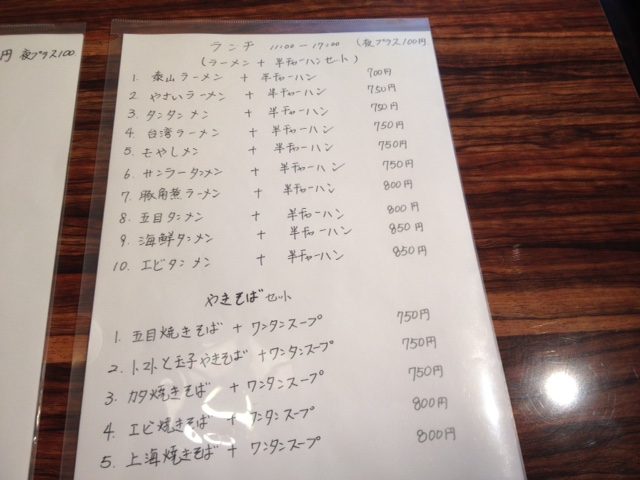 円 夜プラス100
ランチ 11:00-17:00 (夜プラス100円
(ラーメン + 半チャーハンセット)
1. 泰山ラーメン + 半チャーハン 700円
2 やさいラーメン + 半チャーハン 750円
3. タンタンメン + 半チャーハン 750円
4. 台湾ラーメン + 半チャーハン 750円
5. モやしメン + 半チャーハン 750円
6. サンラータンメン + 半チャーハン 750円
7. 豚角煮ラーメン + 半チャーハン 800円
8. 五目タンメン + 半チャーハン 800円
9. 海鮮タンメン + 半チャーハン 850円
10. エビタンメン + 半チャーハン 850円
やきそばセット
1. 五目焼きそば + ワンタンスープ 750円
2. トマトと玉子やきそば + ワンタンスープ 750円
3. カタ焼きそば + ワンタンスープ 750円
4. エビ焼きそば + ワンタンスープ 800円
5. 上海焼きそば + ワンタンスープ 800円